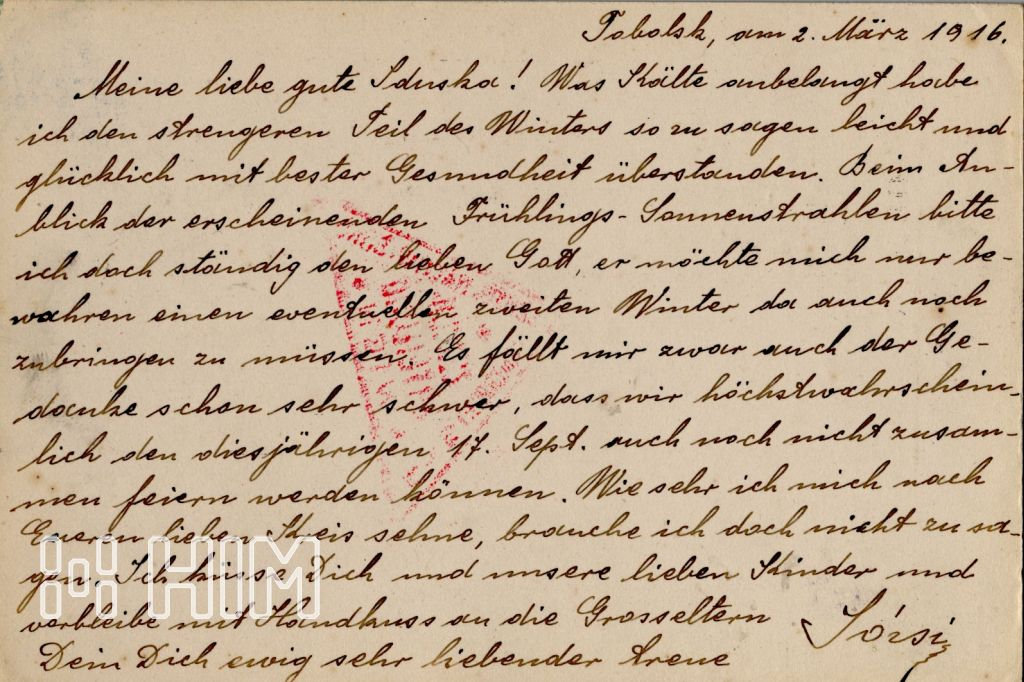 Tobolsk, am 2. März 1916.
Meine liebe gute Iduska! Was Kälte anbelangt habe
ich den strengeren Teil des Winters so zu sagen leicht und
glücklich mit bester Gesundheit überstanden. Beim An-
blick der erscheinenden Frühlings-Sonnenstrahlen bitte
ich doch ständig den lieben Gott, er möchte mich nur be-
wahren einen eventuellen zweiten Winter da auch noch
zubringen zu müssen. Es fällt mir zwar auch der Ge-
danke schon sehr schwer, dass wir höchstwahrschein-
lich den diesjährigen 17. Sept. auch noch nicht zusam-
men feiern werden können. Wie sehr ich mich nach
Eueren lieben Kreis sehne, brauche ich doch nicht zu sa-
gen. Ich küsse Dich und unsere lieben Kinder und
verbleibe mit Handkuss an die Grosseltern
Dein Dich ewig sehr liebender treue
HIM